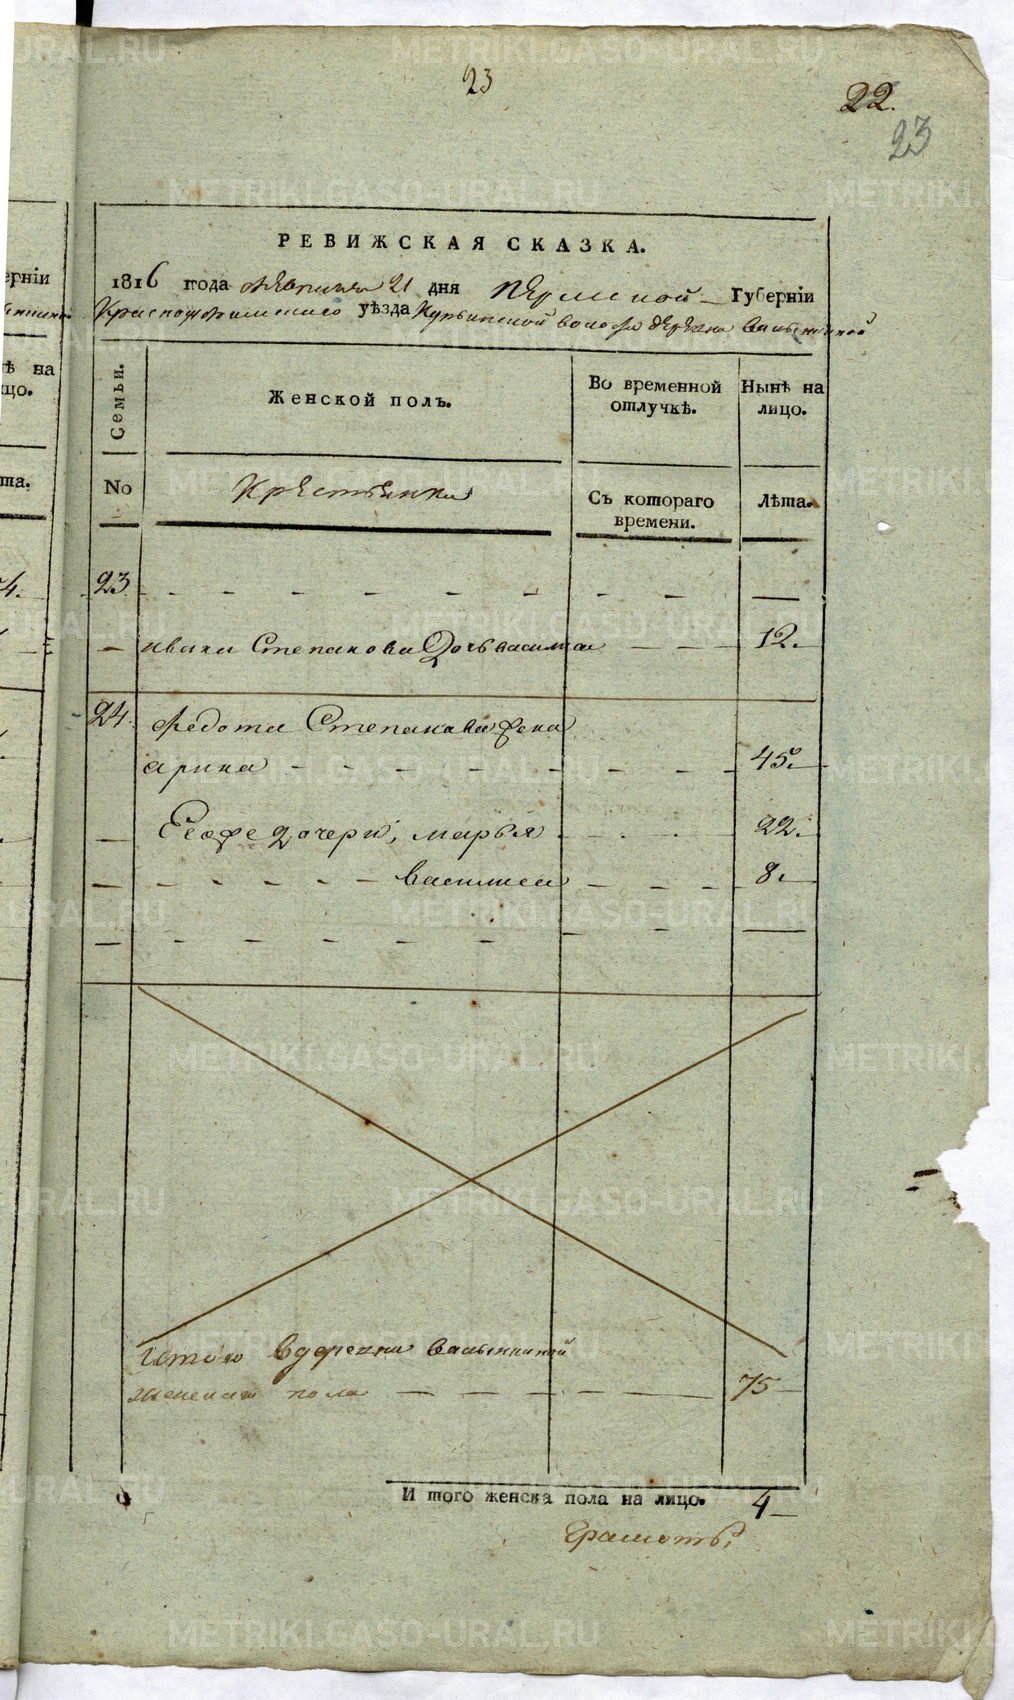 23
22.
23
РЕВИЖСКАЯ СКАЗКА.
1816 года февраля 21 дня Пермской Губерніи
Красноуфимскаго уѣзда волости деревни
Семьи.
Женской полъ.
Во временной отлучкѣ.
Нынѣ на лицо.
No
Крестьянки
Съ котораго времени.
Лѣта.
23
ивана Степанова дочь василиса 12.
24. Федота Степанова жена
арина 45.
Его же дочери, марья 22.
василиса 8.
Итого в деревни
женска пола 75
И того женска пола на лицо. 4
METRIKI.GASO-URAL.RU
ерніи
ѣ на
цо.
та.
4.